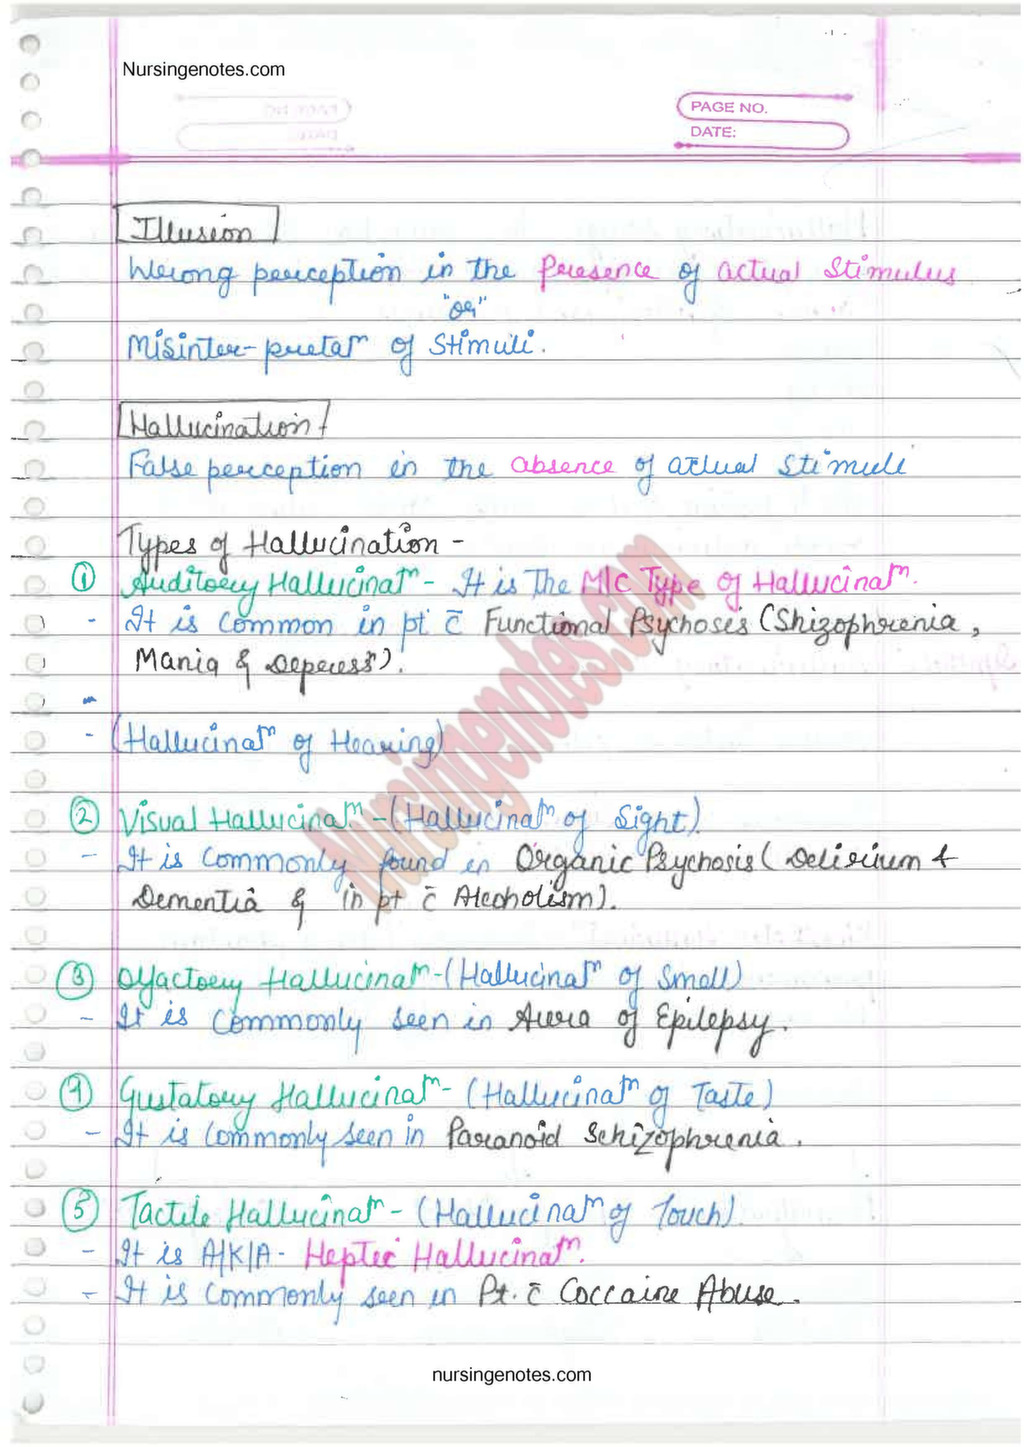 Nursingenotes.com
PAGE NO.
DATE:
Illusion
Wrong perception in the Presence of actual Stimulus
"or"
Misinter-pretatn of Stimuli.
Hallucination
False perception in the absence of actual stimuli
Types of Hallucination -
① Auditory Hallucinatn - It is The M/C Type of Hallucinatn.
- It is common in pt c̄ Functional Psychosis (Shizophrenia,
Mania & Depressn).
- (Hallucinatn of Hearing)
② Visual Hallucinatn - (Hallucinatn of Sight).
- It is commonly found in Organic Psychosis (Delirium &
Dementia & in pt c̄ Alcoholism).
③ Olfactory Hallucinatn - (Hallucinatn of Smell)
- It is commonly seen in Aura of Epilepsy.
④ Gustatory Hallucinatn - (Hallucinatn of Taste)
- It is commonly seen in Paranoid Schizophrenia.
⑤ Tactile Hallucinatn - (Hallucinatn of Touch).
- It is A/K/A - Heptic Hallucinatn.
- It is commonly seen in Pt. c̄ Coccaine Abuse.
Nursingenotes.com
nursingenotes.com